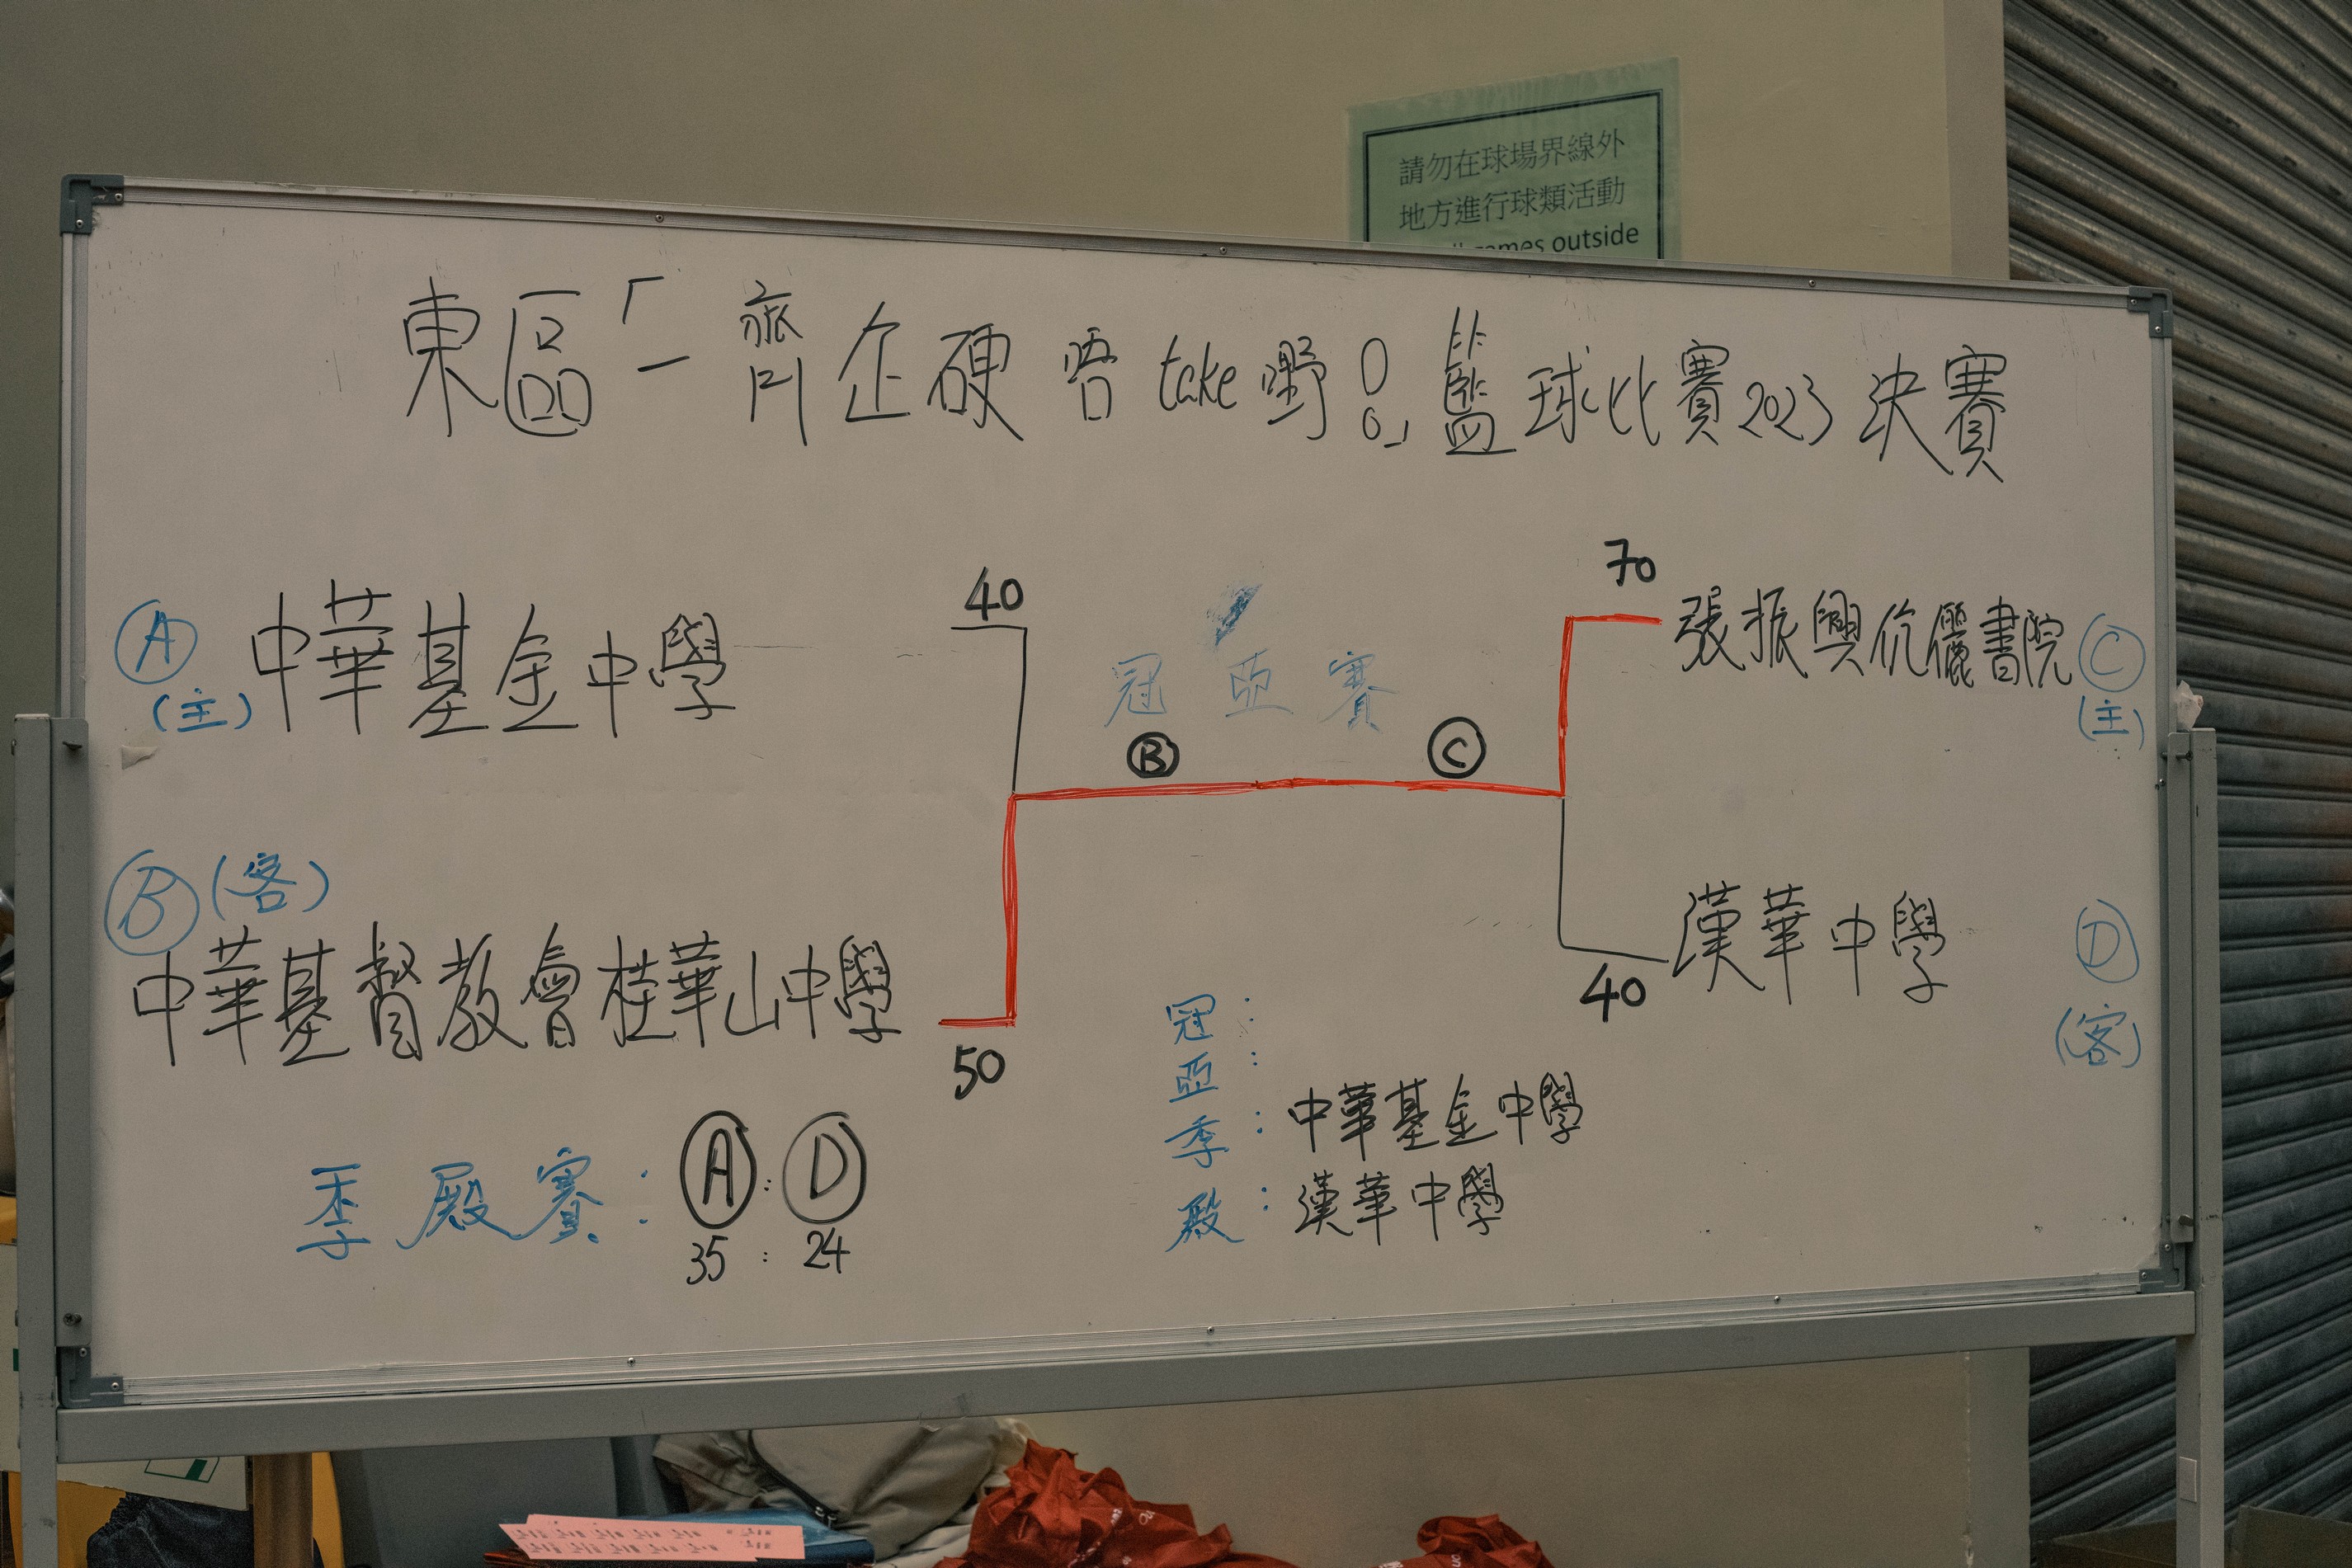 請勿在球場界線外
地方進行球類活動
games outside
東區「一齊企硬 唔take嘢!」籃球比賽2023決賽
40
70
Ⓐ 中華基金中學
(主)
冠亞賽
張振興伉儷書院 Ⓒ
(主)
Ⓑ Ⓒ
Ⓑ (客)
中華基督教會桂華山中學
50
漢華中學 Ⓓ
(客)
40
季殿賽: Ⓐ : Ⓓ
35 : 24
冠:
亞:
季: 中華基金中學
殿: 漢華中學